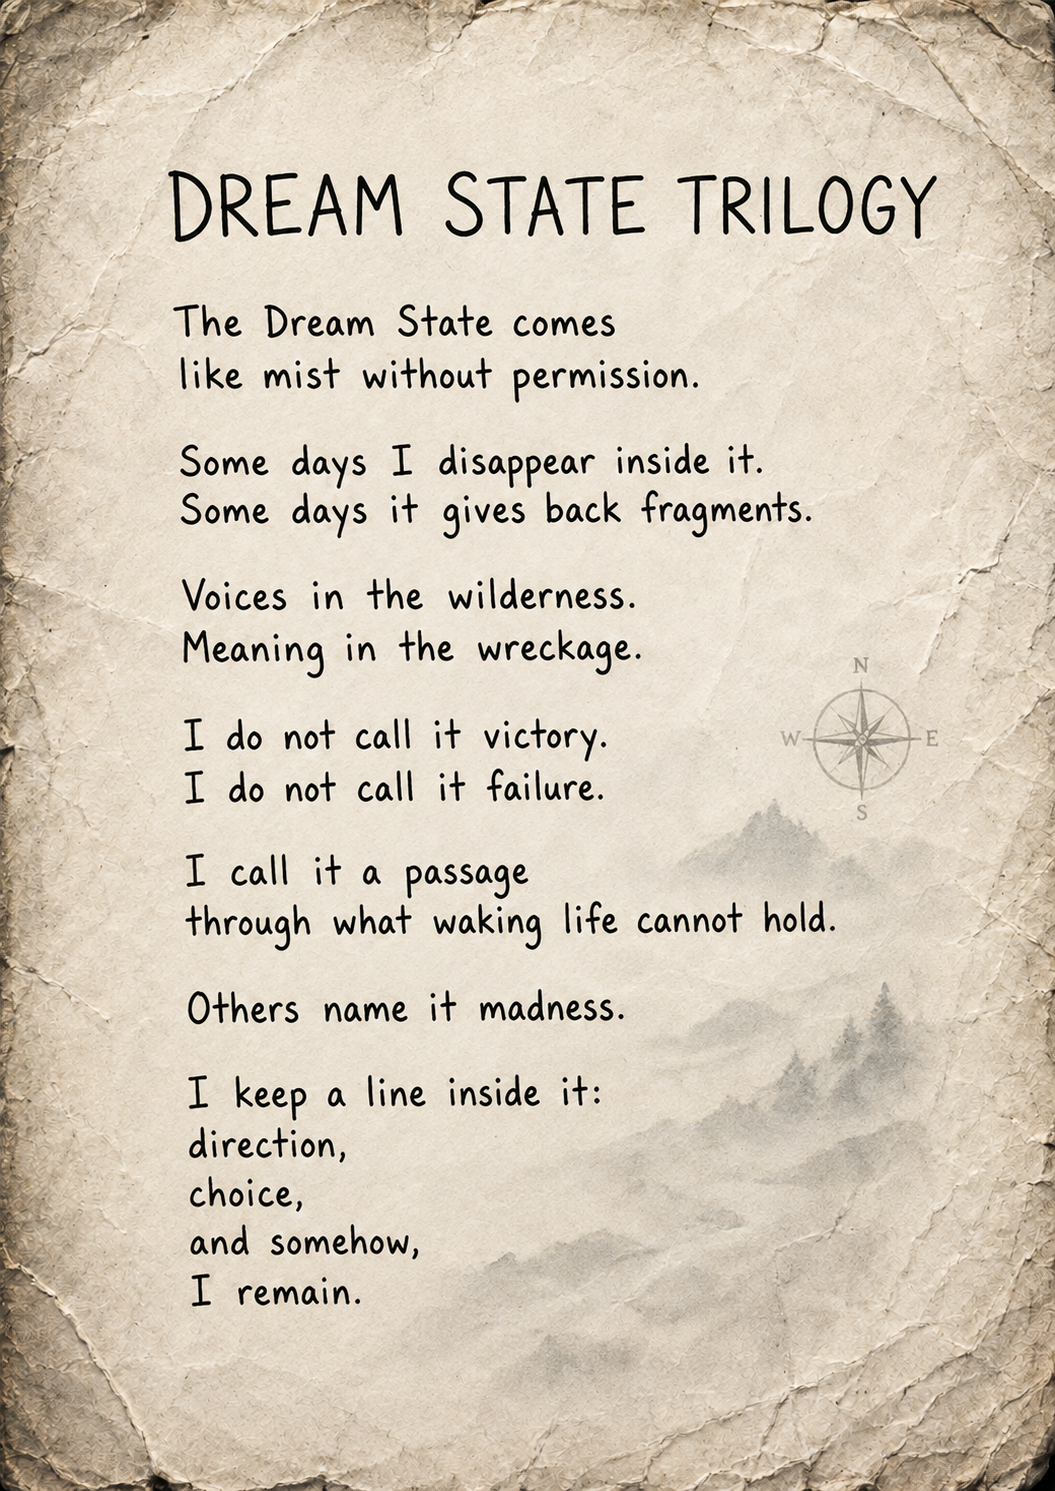 DREAM STATE TRILOGY
The Dream State comes
like mist without permission.
Some days I disappear inside it.
Some days it gives back fragments.
Voices in the wilderness.
Meaning in the wreckage.
I do not call it victory.
I do not call it failure.
I call it a passage
through what waking life cannot hold.
Others name it madness.
I keep a line inside it:
direction,
choice,
and somehow,
I remain.
N
W E
S